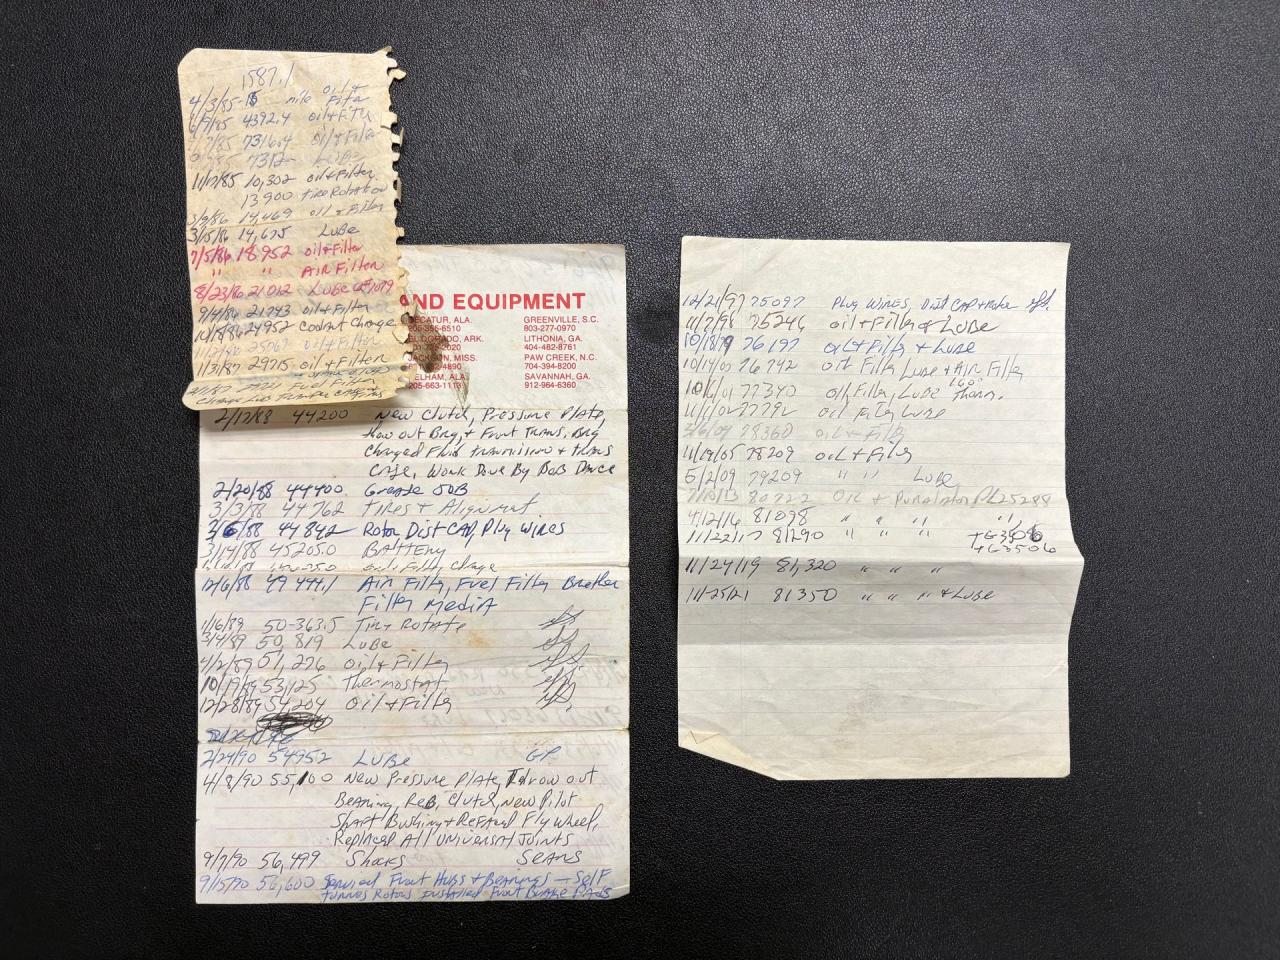 1587.1
4/3/85 mile oil +
Filter
6/9/85 4392.4 oil + Filt
7/85 7316.4 oil + Filter
85 7312 Lube
11/17/85 10,302 oil + Filter
13900 Tire Rotation
3/9/86 14,469 oil + Filter
3/15/86 14,675 Lube
7/5/86 18952 oil + Filter
" " Air Filter
8/23/86 21012 Lube
9/4/86 21743 oil + Filter
10/18/86 24952 Coolant Change
25767 oil + Filter
1/3/87 29715 oil + Filter
Fuel Filter
Change
AND EQUIPMENT
DECATUR, ALA.
205-355-6510
EL DORADO, ARK.
2020
JACKSON, MISS.
4890
PELHAM, ALA.
205-663-1113
GREENVILLE, S.C.
803-277-0970
LITHONIA, GA.
404-482-8761
PAW CREEK, N.C.
704-394-8200
SAVANNAH, GA.
912-964-6360
2/17/88 44200 New Clutch, Pressure Plate,
thow out Brg, + Front Trans. Brg
Changed Fluid transmission + trans
Case, Work Done By Bob Dance
2/20/88 44400 Grease JOB
3/3/88 44762 Tires + Alignment
3/6/88 44842 Rotor Dist CAP, Plug Wires
3/14/88 45205.0 BATTERY
Change
12/6/88 49444.1 Air Filter, Fuel Filter Breather
Filter Media
1/16/89 50-363.5 Tire Rotate
3/4/89 50,819 Lube
4/2/89 51,276 oil + Filter
10/19/89 53,125 Thermostat
12/28/89 54204 Oil + Filter
2/24/90 54952 LUBE GP
4/8/90 55,100 New Pressure Plate, Throw out
Bearing, ReB. Clutch, New Pilot
Shaft Bushing + Refaced Fly Wheel,
Replaced All Universal Joints
9/7/90 56,499 Shocks SEARS
9/15/90 56,600 Serviced Front Hubs + Bearings — Self
turned Rotors Installed Front Brake Pads
12/21/97 75097 Plug WIRES, Dist CAP + Rotor
11/7/98 75246 oil + Filter & Lube
10/18/99 76197 oil + Filter + Lube
10/14/01 76742 oil Filter Lube + Air Filter
10/6/01 77340 oil, Filter, Lube 160° Therm.
11/1/02 77792 oil Filter Lube
78360 oil + Filter
11/19/05 78209 oil + Filter
5/2/09 79209 " " Lube
7/10/13 80222 Oil + Purolator PL25288
4/12/16 81098 " " " "
11/22/17 81290 " " " TG3506
TG3506
11/24/19 81,320 " " "
11-25/21 81350 " " " + Lube